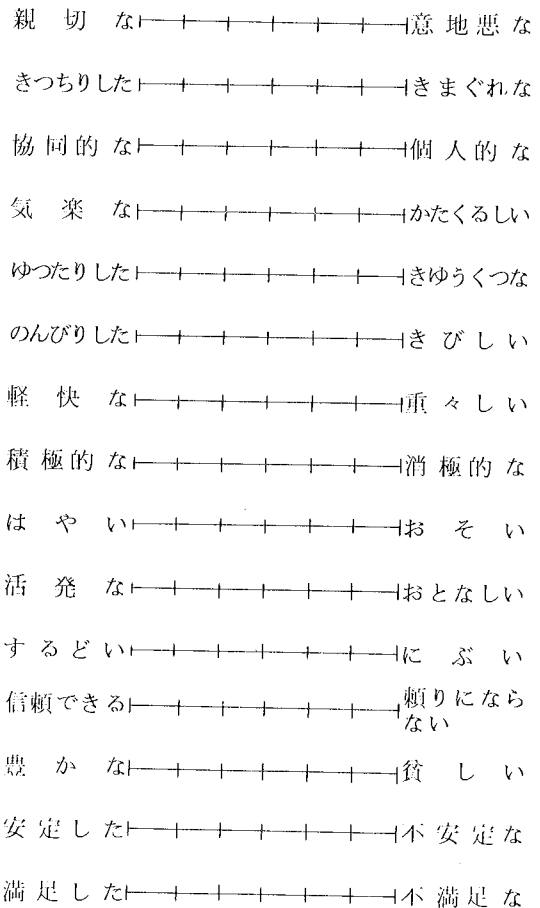 親切な 意地悪な
きつちりした きまぐれな
協同的な 個人的な
気楽な かたくるしい
ゆつたりした きゆうくつな
のんびりした きびしい
軽快な 重々しい
積極的な 消極的な
はやい おそい
活発な おとなしい
するどい にぶい
信頼できる 頼りになら
ない
豊かな 貧しい
安定した 不安定な
満足した 不満足な